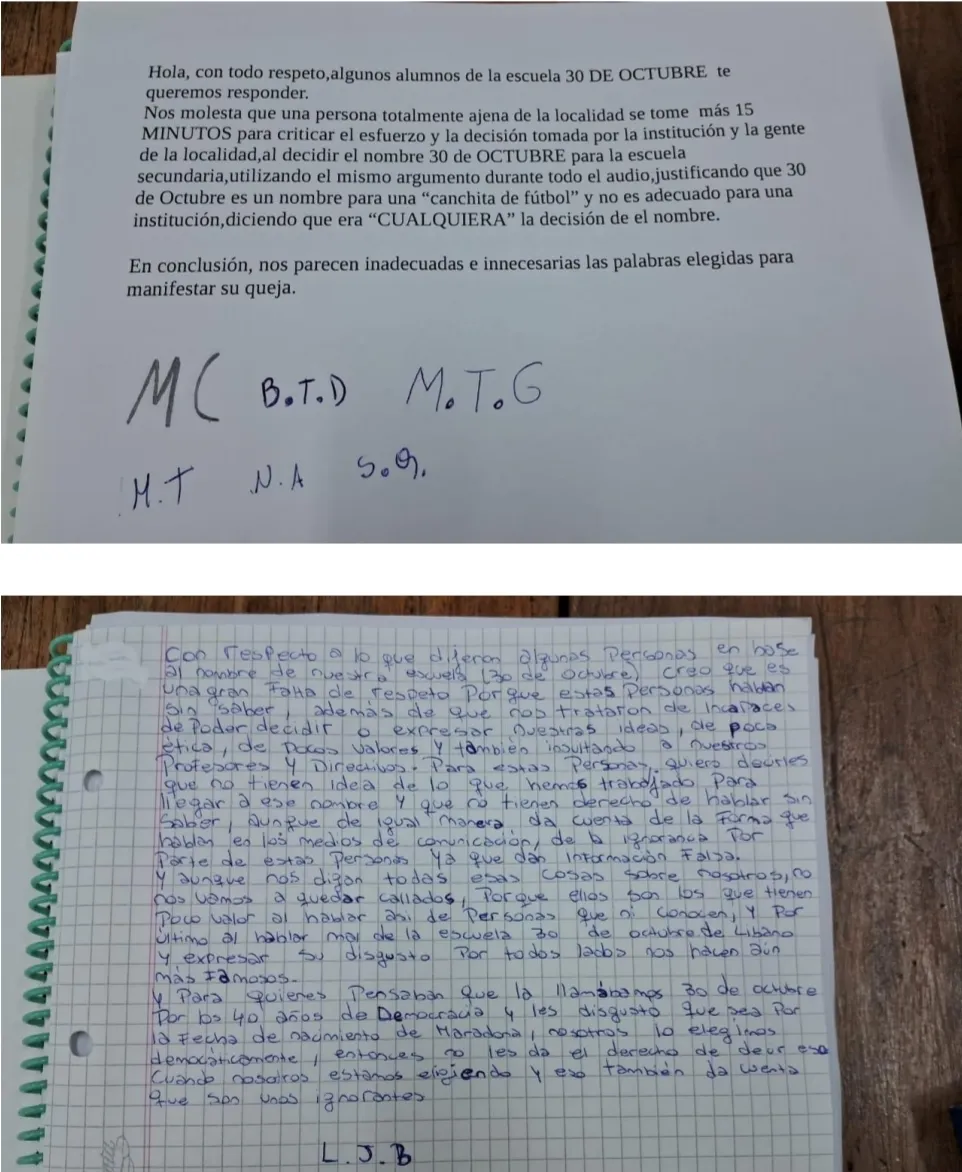 Hola, con todo respeto,algunos alumnos de la escuela 30 DE OCTUBRE te
queremos responder.
Nos molesta que una persona totalmente ajena de la localidad se tome más 15
MINUTOS para criticar el esfuerzo y la decisión tomada por la institución y la gente
de la localidad,al decidir el nombre 30 de OCTUBRE para la escuela
secundaria,utilizando el mismo argumento durante todo el audio,justificando que 30
de Octubre es un nombre para una “canchita de fútbol” y no es adecuado para una
institución,diciendo que era “CUALQUIERA” la decisión de el nombre.
En conclusión, nos parecen inadecuadas e innecesarias las palabras elegidas para
manifestar su queja.
MC B.T.D M.T.G
M.T N.A S.G.
Con respecto a lo que dijeron algunas Personas en base
al nombre de nuestra escuela (30 de octubre) creo que es
una gran Falta de respeto Porque estas Personas hablan
sin saber, además de que nos trataron de incapaces
de Poder decidir o expresar nuestras ideas, de poca
ética, de pocos valores y también insultando a nuestros
Profesores y Directivos. Para estas Personas, quiero decirles
que no tienen idea de lo que hemos trabajado Para
llegar a ese nombre y que no tienen derecho de hablar sin
saber, aunque de igual manera da cuenta de la Forma que
hablan en los medios de comunicación, de la ignorancia Por
Parte de estas Personas ya que dan información Falsa.
y aunque nos digan todas esas cosas sobre nosotros, no
nos vamos a quedar callados, Porque ellos son los que tienen
Poco valor al hablar así de Personas que ni conocen, y Por
último al hablar mal de la escuela 30 de octubre de Libano
y expresar su disgusto Por todos lados nos hacen aún
más Famosos.
y Para quienes Pensaban que la llamábamos 30 de octubre
Por los 40 años de Democracia y les disgusto que sea Por
la Fecha de nacimiento de Maradona, nosotros lo elegimos
democáticamente, entonces no les da el derecho de decir eso
Cuando nosotros estamos eligiendo y eso también da cuenta
que son unos ignorantes
L.J.B